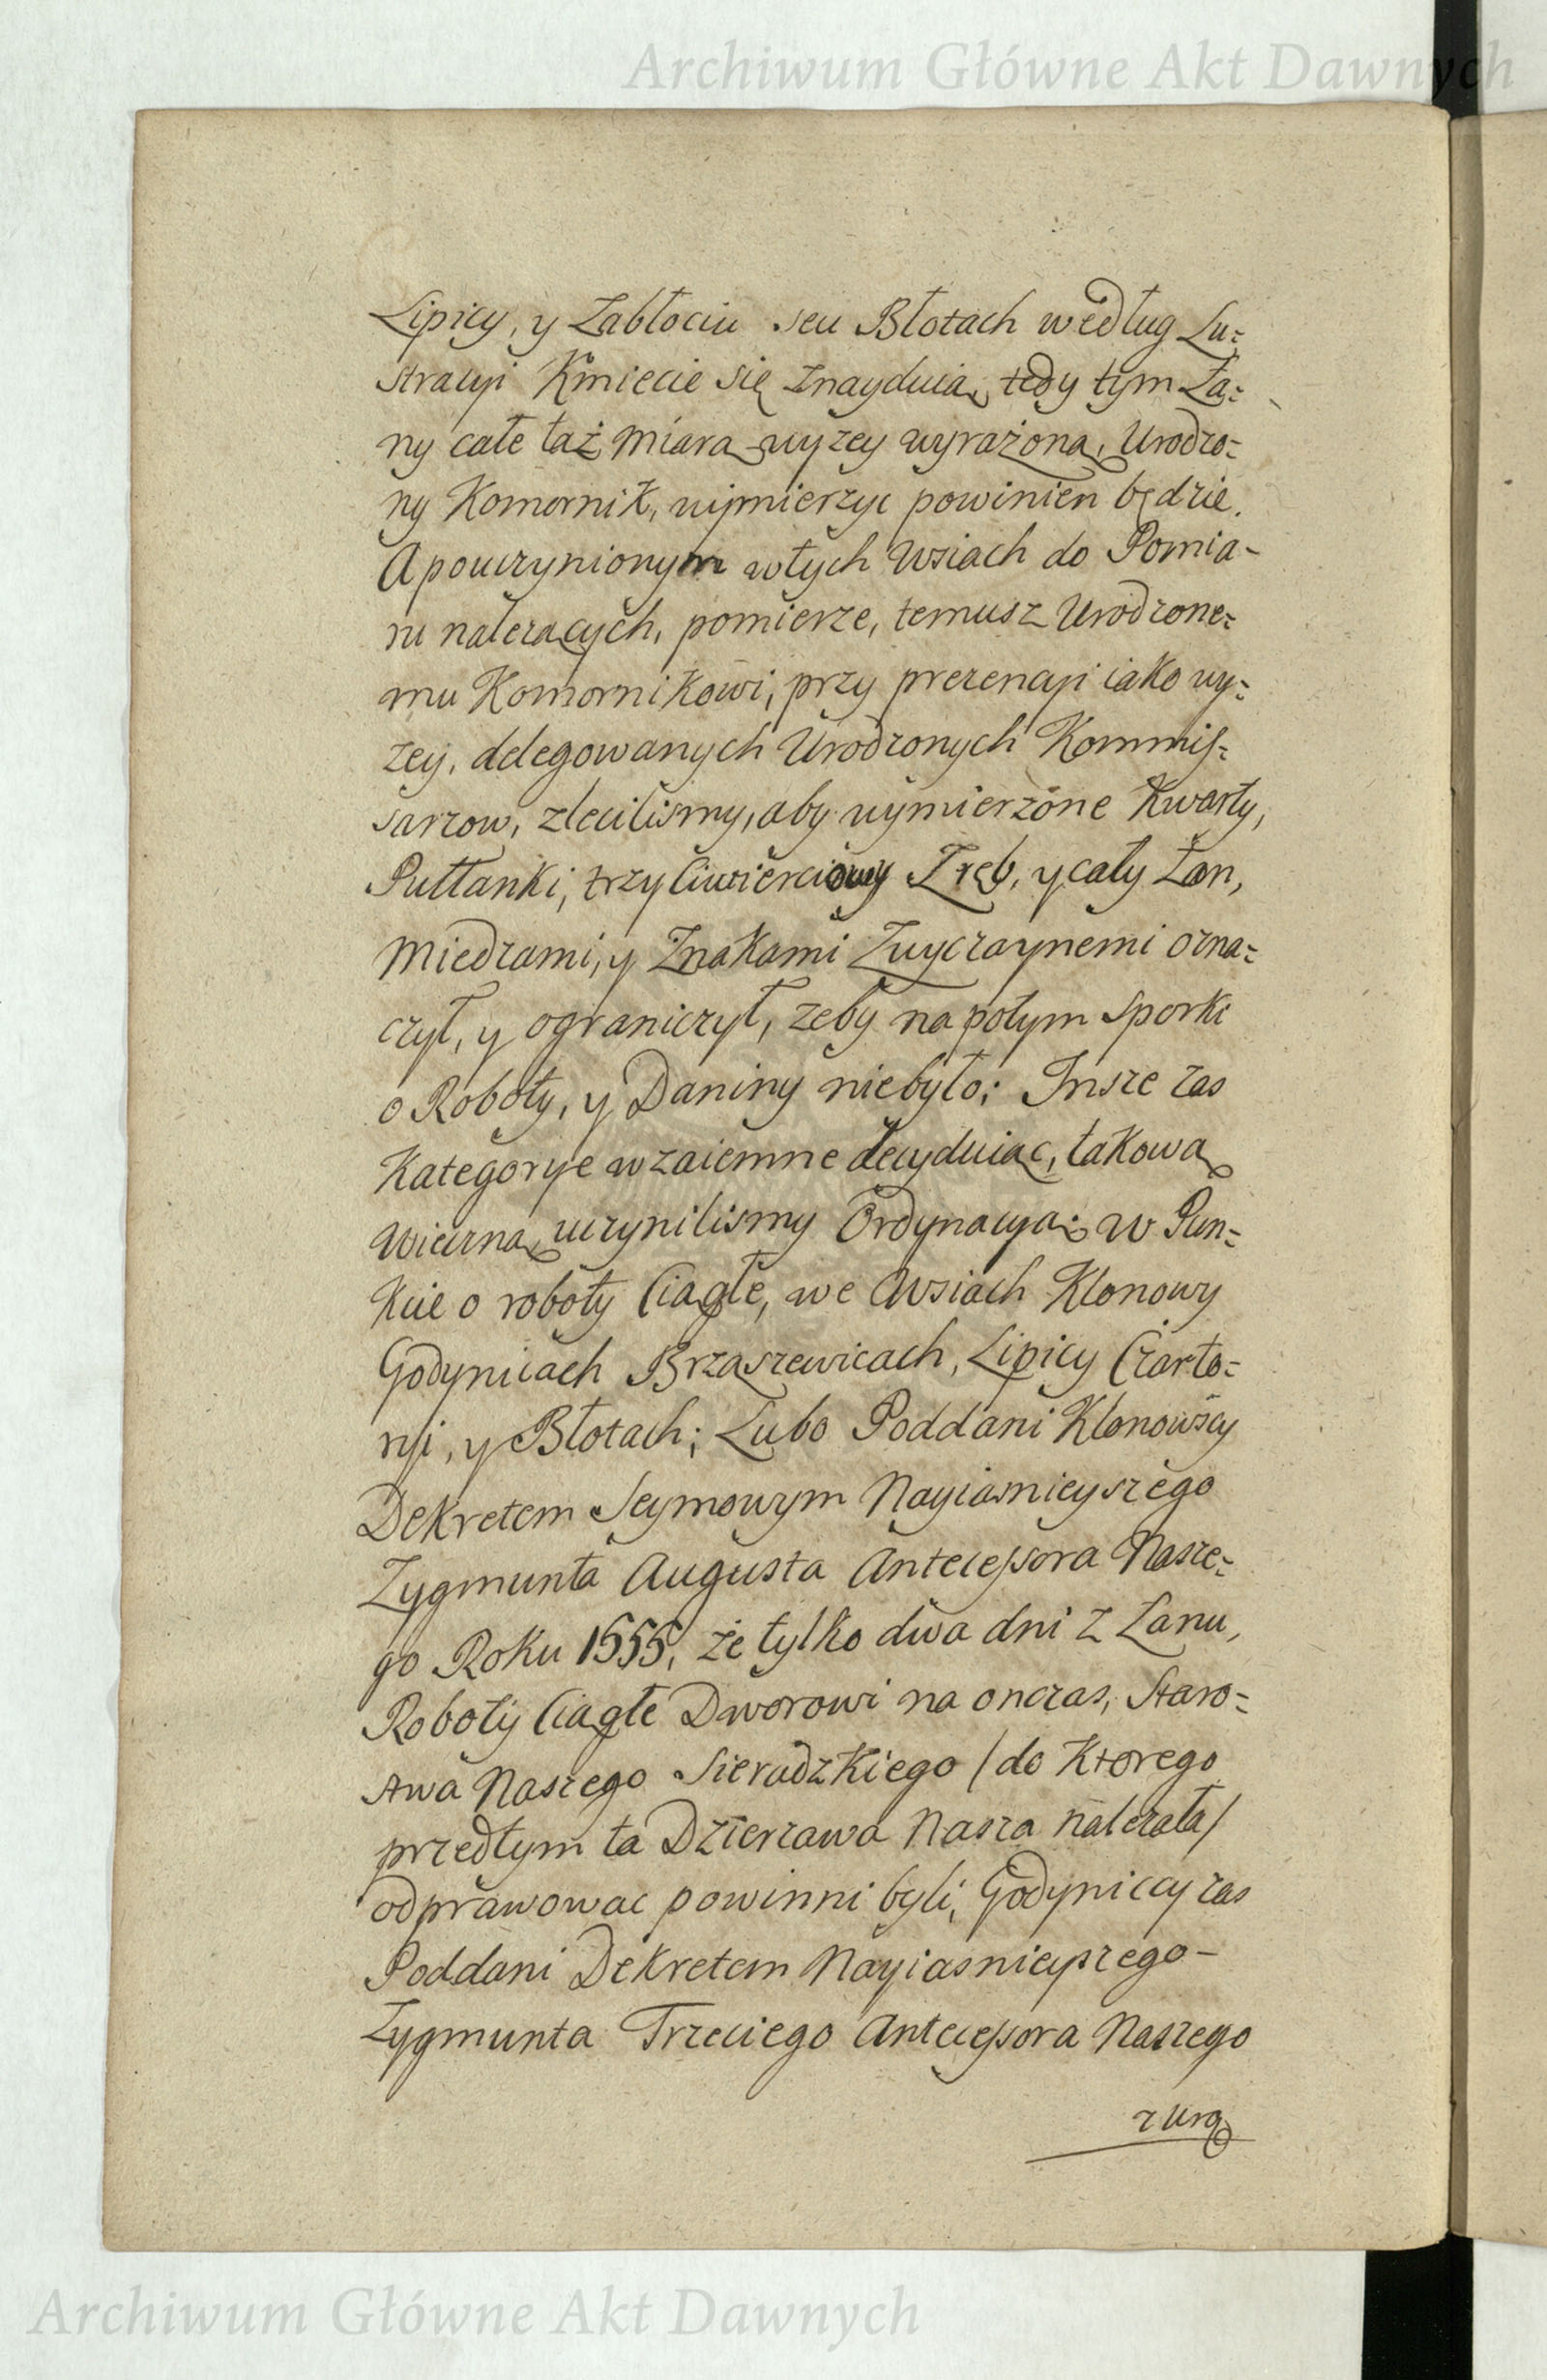 Archiwum Główne Akt Dawnych
Lipicy, y Zabłociu seu Błotach według Lu:
stracyi Kmiecie się znayduią, tedy tym Ła:
ny całe taż miarą wyzey wyrażoną, Urodzo-
ny Komornik, wymierzyc powinien będzie.
A pouczynionym w tych Wsiach do Pomia-
ru nalezących, pomierze, temusz Urodzone:
mu Komornikowi, przy prezencyi iako wy:
zey, delegowanych Urodzonych Kommis:
sarzow, zlecilismy, aby wymierzone Kwarty,
Puttanki, trzy Cwierciowy Zręb, y cały Łan,
Miedzami, y Znakami Zwyczaynemi ozna:
czył, y ograniczył, zeby na potym sporki
o Roboty, y Daniny niebyło; Insze zas
Kategorye wzaiemne decyduiąc, takową
Wieczną uczynilismy Ordynacyą: w Pun-
kcie o roboty Ciągłe, we Wsiach Klonowy
Godynicach Brząszewicach, Lipicy Czarto:
ryi, y Błotach; Lubo Poddani Klonowscy
Dekretem Seymowym Nayiasnieyszego
Zygmunta Augusta Antecessora Nasze:
go Roku 1555, że tylko dwa dni z Łanu,
Roboty Ciągłe Dworowi na onczas, Staro-
stwa Naszego Sieradzkiego /do ktorego
przedtym ta Dzierzawa Nasza nalezała/
odprawowac powinni byli, Godyniccy zas
Poddani Dekretem Nayiasnieyszego-
Zygmunta Trzeciego Antecessora Naszego
z Urą
Archiwum Główne Akt Dawnych